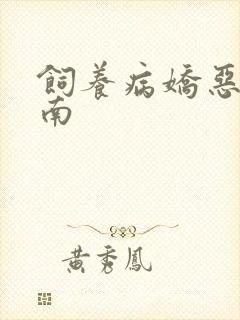 飼養病嬌惡
南
黃秀鳳